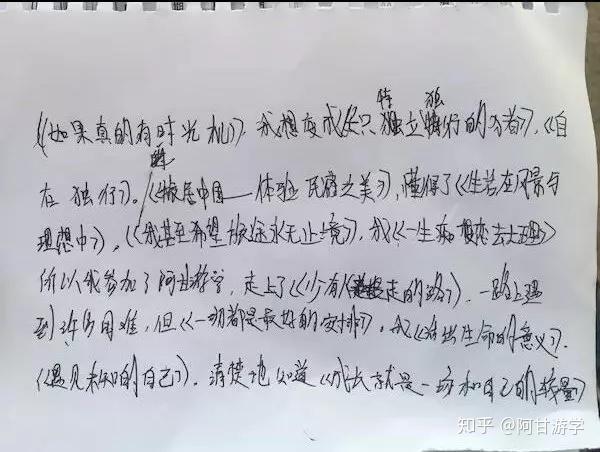 《如果真的有时光机》，我想变成《一只特立独行的行者》，《自
在独行》。《旅居中国——体验民宿之美》，懂得了《生若在风景与
理想中》，《我甚至希望旅途永无止境》，我《一生痴恋去大理》
所以我参加了阿甘游学，走上了《少有人走的路》，一路上遇
到许多困难，但《一切都是最好的安排》，我《活出生命的意义》，
《遇见未知的自己》，清楚地知道《成长就是一场和自己的较量》
知乎 @阿甘游学